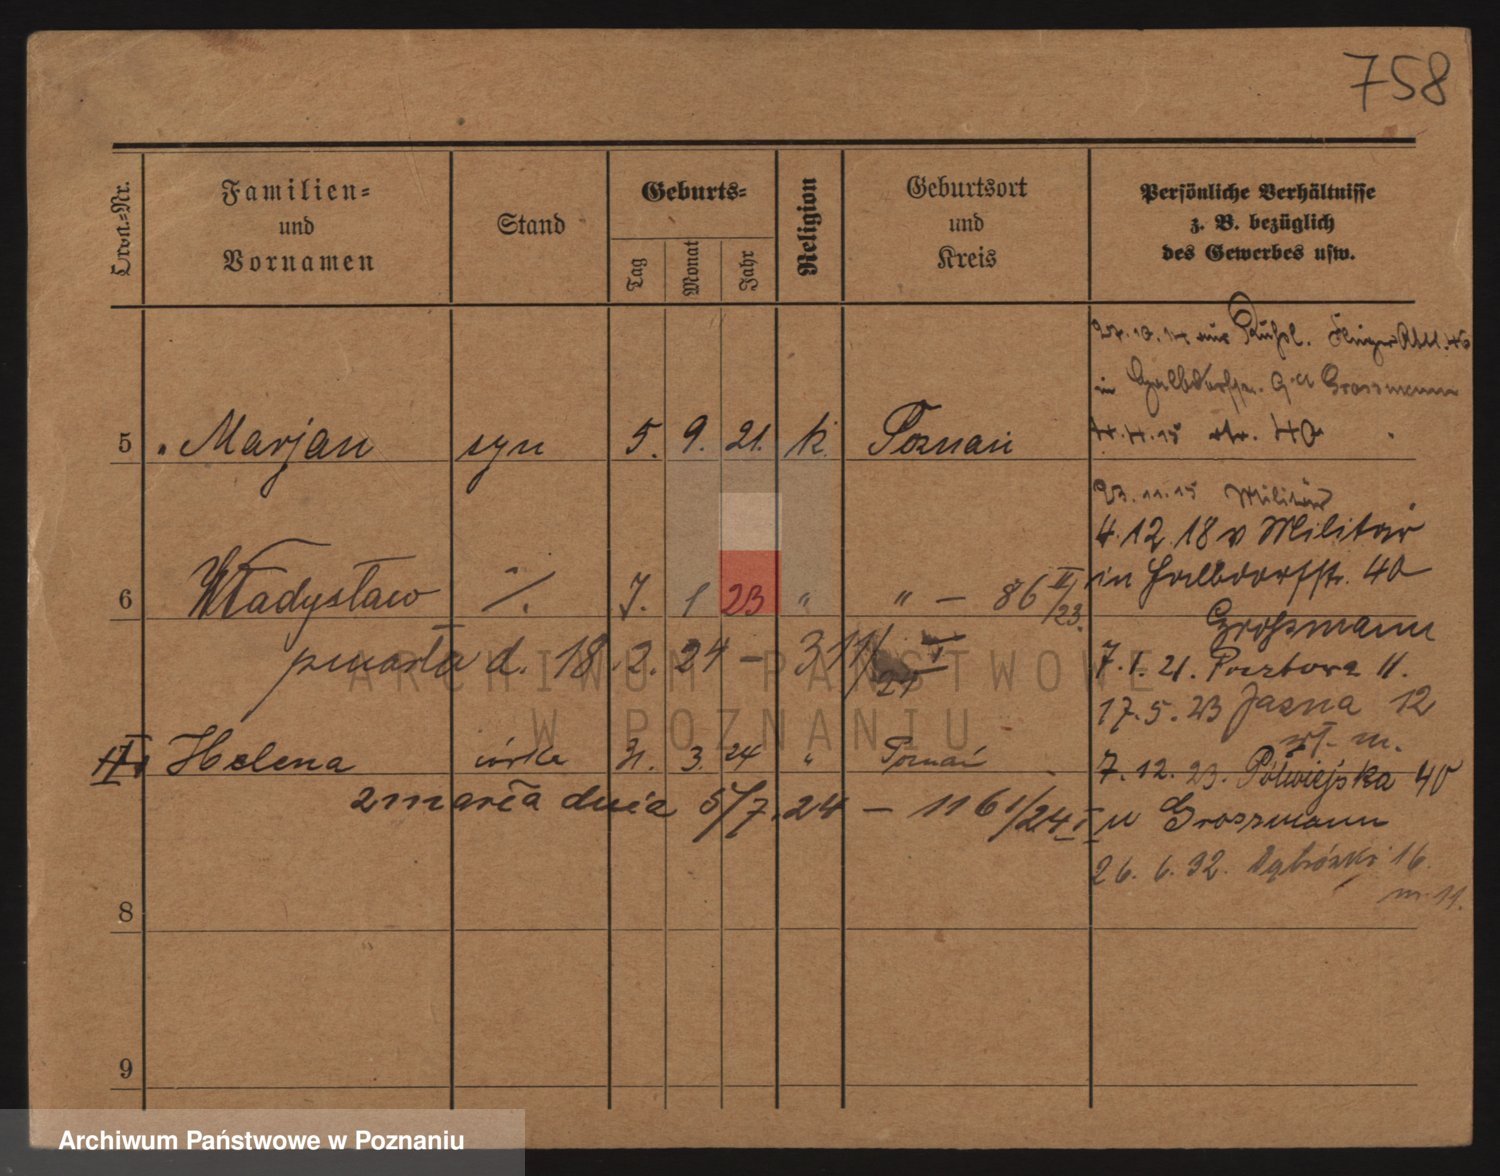 758
Ordn.-Nr.
Familien-
und
Vornamen
Stand
Geburts-
Tag
Monat
Jahr
Religion
Geburtsort
und
Kreis
Persönliche Verhältnisse
z. B. bezüglich
des Gewerbes usw.
5 Marjan syn 5. 9. 21. k. Poznań
6 Władysław ./. 7. 1 23 " " — 86 II/23.
d. 18.2.24 —
Helena córka 31. 3. 24 " Poznań
zmarła dnia 5/7.24 — 1161/24
8
9
in Halbdorfstr. Grossmann
40
23.11.15 Militär
4.12.18 v Militär
in Halbdorfstr. 40
Großmann
7.1.21. Pocztowa 11.
17.5.23 Jasna 12
7.12.23. Półwiejska 40
u Grossmann
26.6.32. Dąbrówki 16.
m. 11.
ARCHIWUM PAŃSTWOWE
W POZNANIU
Archiwum Państwowe w Poznaniu